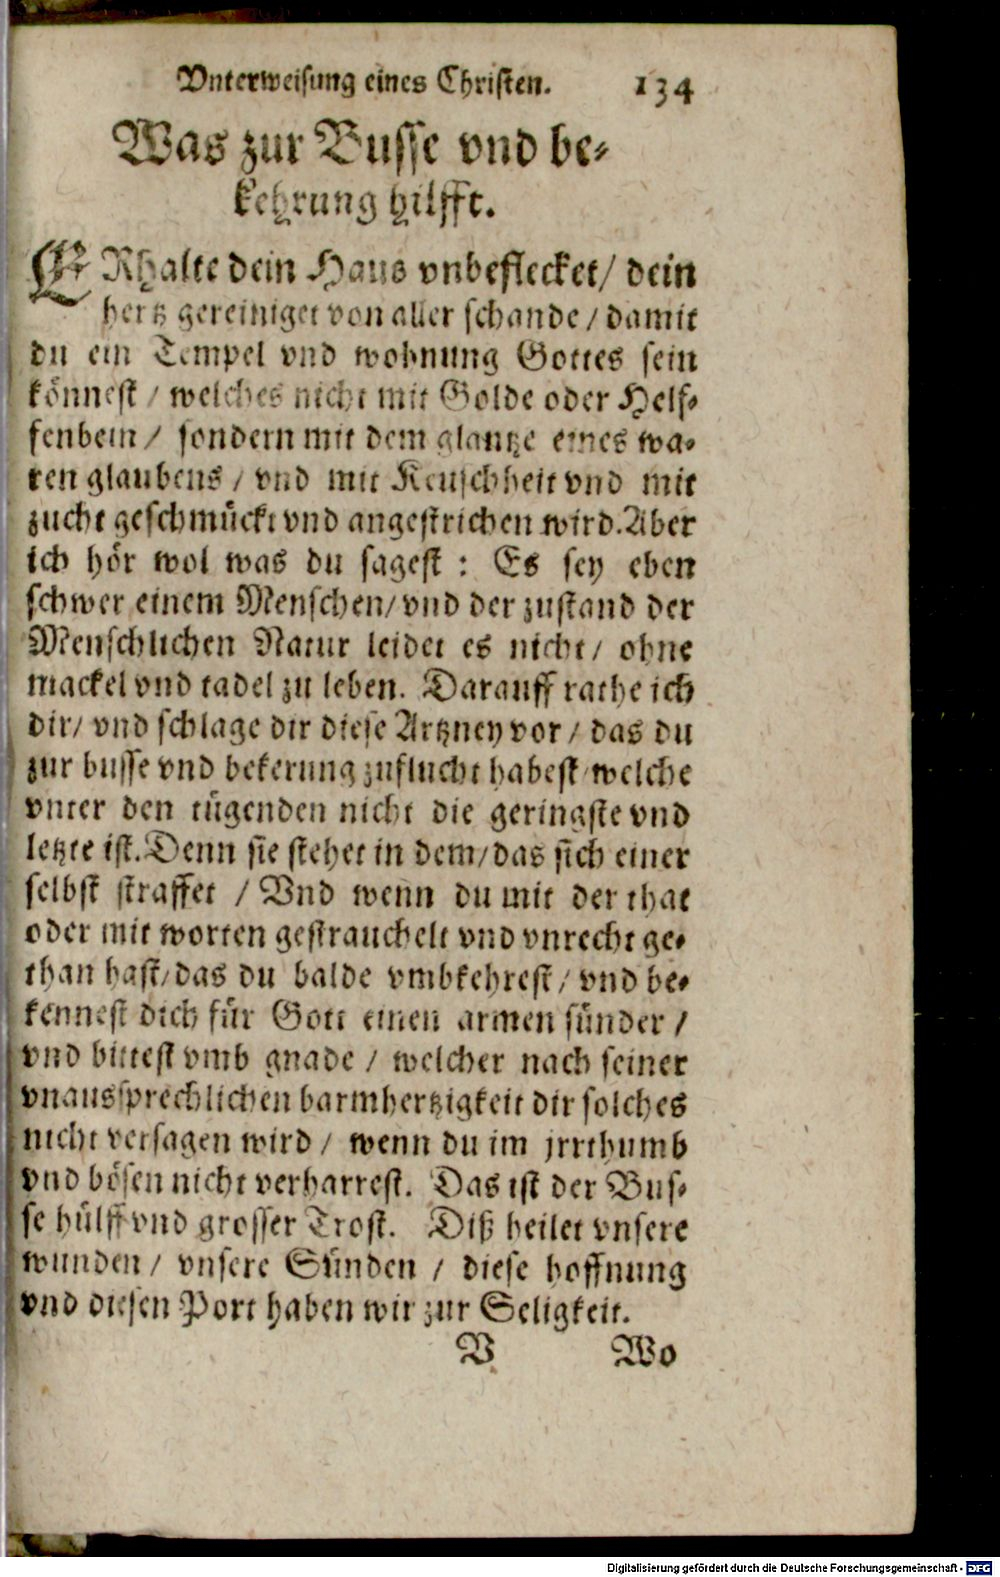 Vnterweisung eines Christen. 134
Was zur Busse vnd be-
kehrung hilfft.
ERhalte dein Haus vnbeflecket/ dein
hertz gereiniget von aller schande/ damit
du ein Tempel vnd wohnung Gottes sein
könnest/ welches nicht mit Golde oder Helf-
fenbein/ sondern mit dem glantze eines wa-
ren glaubens/ vnd mit Keuschheit vnd mit
zucht geschmückt vnd angestrichen wird. Aber
ich hör wol was du sagest: Es sey eben
schwer einem Menschen/ vnd der zustand der
Menschlichen Natur leidet es nicht/ ohne
mackel vnd tadel zu leben. Darauff rathe ich
dir/ vnd schlage dir diese Artzney vor/ das du
zur busse vnd bekerung zuflucht habest/ welche
vnter den tügenden nicht die geringste vnd
letzte ist. Denn sie stehet in dem/ das sich einer
selbst straffet / Vnd wenn du mit der that
oder mit worten gestrauchelt vnd vnrecht ge-
than hast/ das du balde vmbkehrest/ vnd be-
kennest dich für Gott einen armen sünder/
vnd bittest vmb gnade/ welcher nach seiner
vnaussprechlichen barmhertzigkeit dir solches
nicht versagen wird/ wenn du im jrrthumb
vnd bösen nicht verharrest. Das ist der Bus-
se hülff vnd grosser Trost. Diß heilet vnsere
wunden/ vnsere Sünden/ diese hoffnung
vnd diesen Port haben wir zur Seligkeit.
V Wo
Digitalisierung gefördert durch die Deutsche Forschungsgemeinschaft - DFG